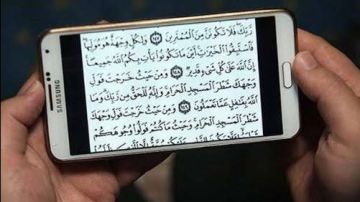 رَبِّكَ فَلَا تَكُونَنَّ مِنَ ٱلْمُمْتَرِينَ ١٤٧ وَلِكُلٍّ وِجْهَةٌ هُوَ مُوَلِّيهَا
فَٱسْتَبِقُوا۟ ٱلْخَيْرَٰتِ أَيْنَ مَا تَكُونُوا۟ يَأْتِ بِكُمُ ٱللَّهُ جَمِيعًا
إِنَّ ٱللَّهَ عَلَىٰ كُلِّ شَىْءٍ قَدِيرٌ ١٤٨ وَمِنْ حَيْثُ خَرَجْتَ فَوَلِّ
وَجْهَكَ شَطْرَ ٱلْمَسْجِدِ ٱلْحَرَامِ وَإِنَّهُۥ لَلْحَقُّ مِن رَّبِّكَ وَمَا
ٱللَّهُ بِغَٰفِلٍ عَمَّا تَعْمَلُونَ ١٤٩ وَمِنْ حَيْثُ خَرَجْتَ فَوَلِّ
وَجْهَكَ شَطْرَ ٱلْمَسْجِدِ ٱلْحَرَامِ وَحَيْثُ مَا كُنتُمْ فَوَلُّوا۟ وُجُوهَكُمْ
SAMSUNG